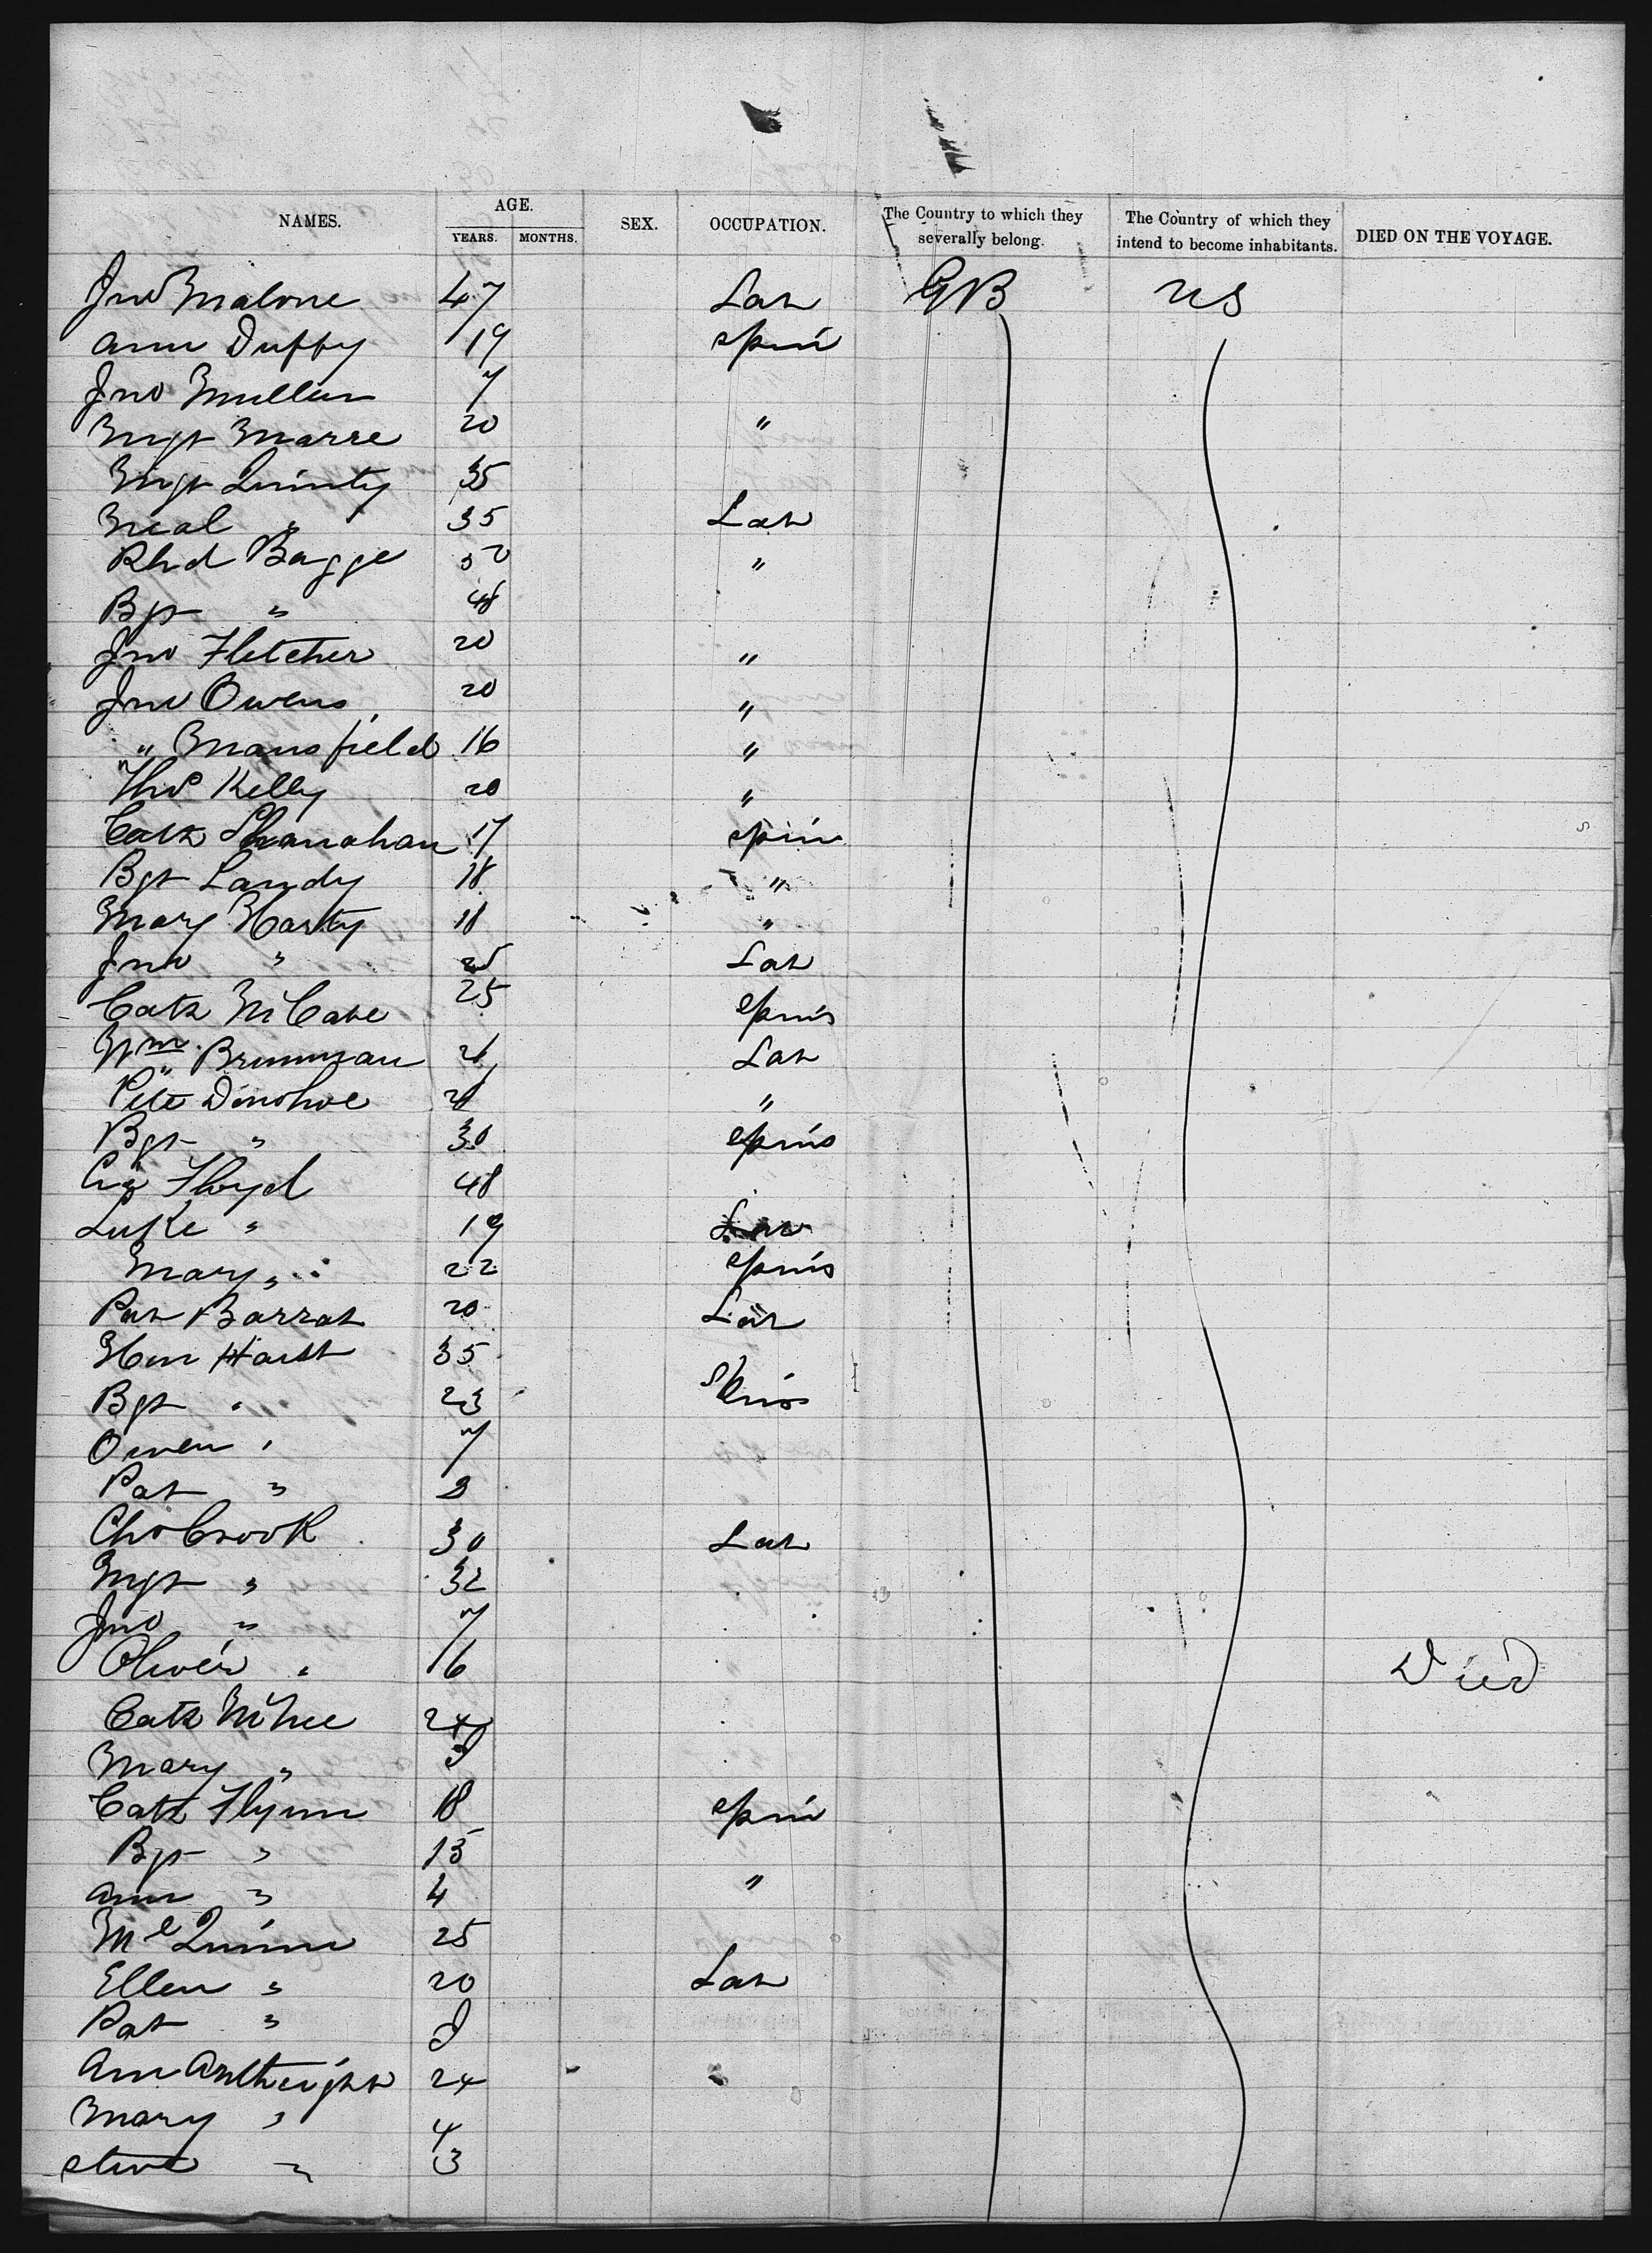 NAMES. AGE. SEX. OCCUPATION. The Country to which they severally belong. The Country of which they intend to become inhabitants. DIED ON THE VOYAGE.
YEARS. MONTHS.
Jno Malone 47 Lab GB US
Ann Duffy 19 Spin
Jno Mullen 7
Mgt Marre 20 "
Mgt Quinty 35
Neal " 35 Lab
Rhd Bagge 50 "
Bgt " 48
Jno Fletcher 20 "
Jno Owens 20 "
" Mansfield 16 "
Thos Kelly 20 "
Cath Shanahan 17 Spin
Bgt Landy 18 "
Mary Harty 18 "
Jno " Lab
Cath McCabe 25 Spins
Wm Brennan Lab
Pete Donohoe "
Bgt " 30 Spins
Floyd 48
Luke " 19 Lab
Mary " 22 Spins
Pat Barrat 20 Lab
Hen 35
Bgt " 23 Spins
Owen " 7
Pat "
Chs Crook 30 Lab
Mgt " 32
Jno " 7
Oliver " 6 Died
Cath McHee 24
Mary "
Cath Flynn 18 Spin
Bgt " 15
Ann " 4 "
Ml Quinn 25
Ellen " 20 Lab
Pat "
Ann 24
Mary " 4
" 3